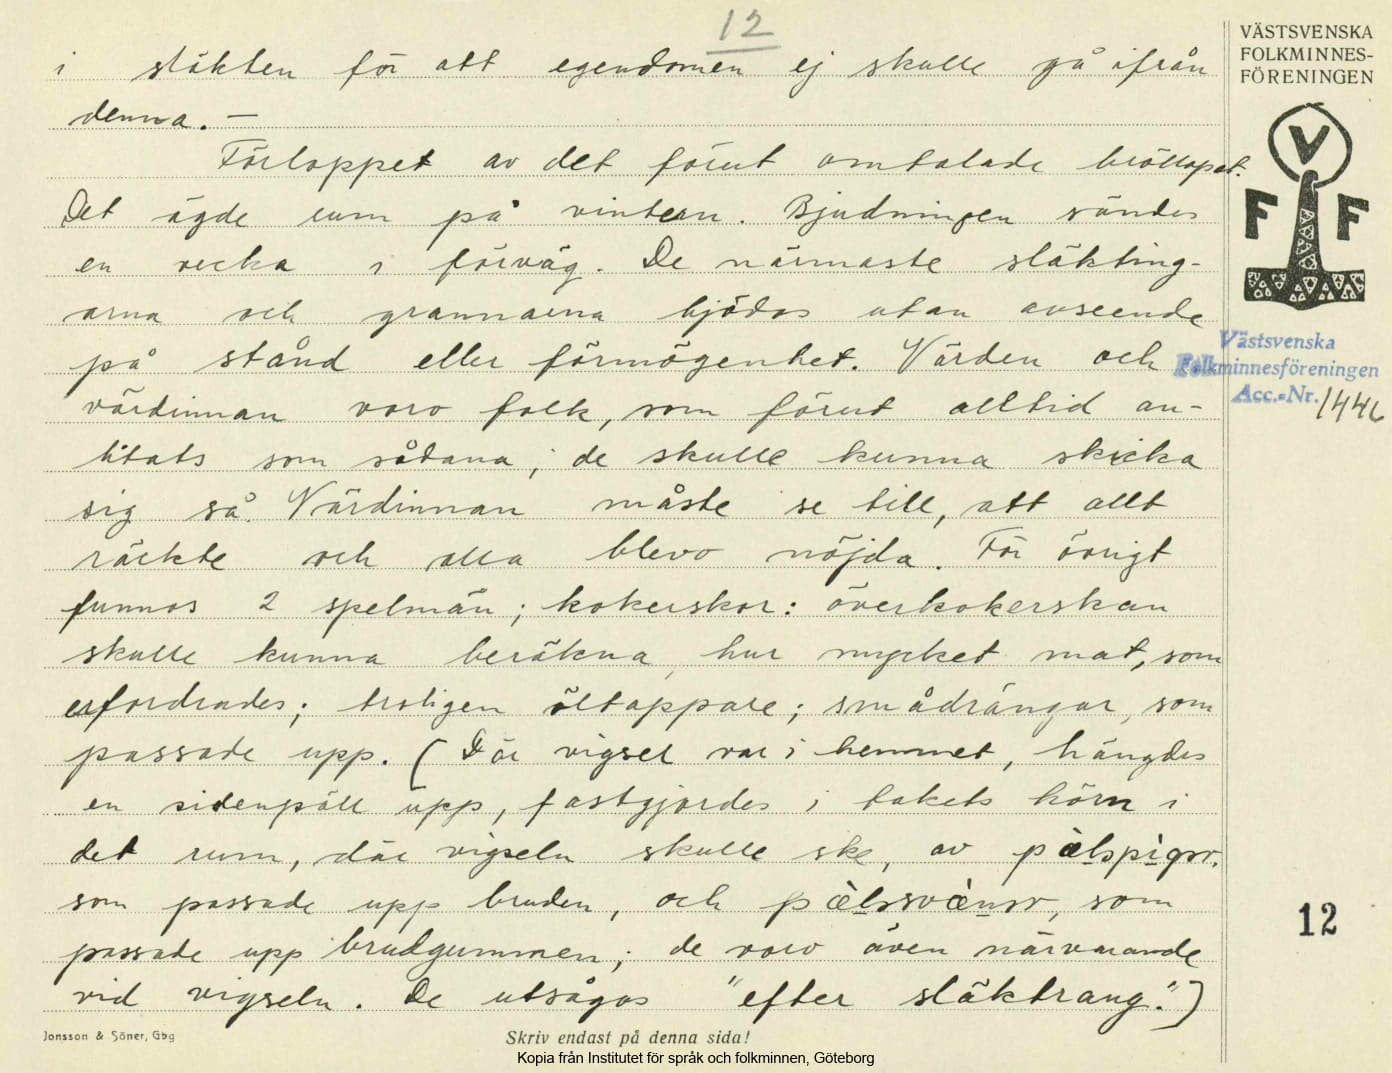 12
i släkten för att egendomen ej skulle gå ifrån
denna. —
Förloppet av det förut omtalade bröllopet.
Det ägde rum på vintern. Bjudningen sändes
en vecka i förväg. De närmaste släkting-
arna och grannarna bjödos utan avseende
på stånd eller förmögenhet. Värden och
värdinnan voro folk, som förut alltid an-
litats som sådana; de skulle kunna skicka
sig så. Värdinnan måste se till, att allt
räckte och alla blevo nöjda. För övrigt
funnos 2 spelmän; kokerskor: överkokerskan
skulle kunna beräkna, hur mycket mat, som
erfordrades; troligen öltappare; smådrängar, som
passade upp. (Där vigsel var i hemmet, hängdes
en sidenpäll upp, fastgjordes i takets hörn i
det rum, där vigseln skulle ske, av pälspigor,
som passade upp bruden, och pälssvänor, som
passade upp brudgummen; de voro även närvarande
vid vigseln. De utsågos "efter släktrang".)
VÄSTSVENSKA
FOLKMINNES-
FÖRENINGEN
V
F F
Västsvenska
Folkminnesföreningen
Acc.-Nr. 1446
12
Jonsson & Söner, Gbg
Skriv endast på denna sida!
Kopia från Institutet för språk och folkminnen, Göteborg